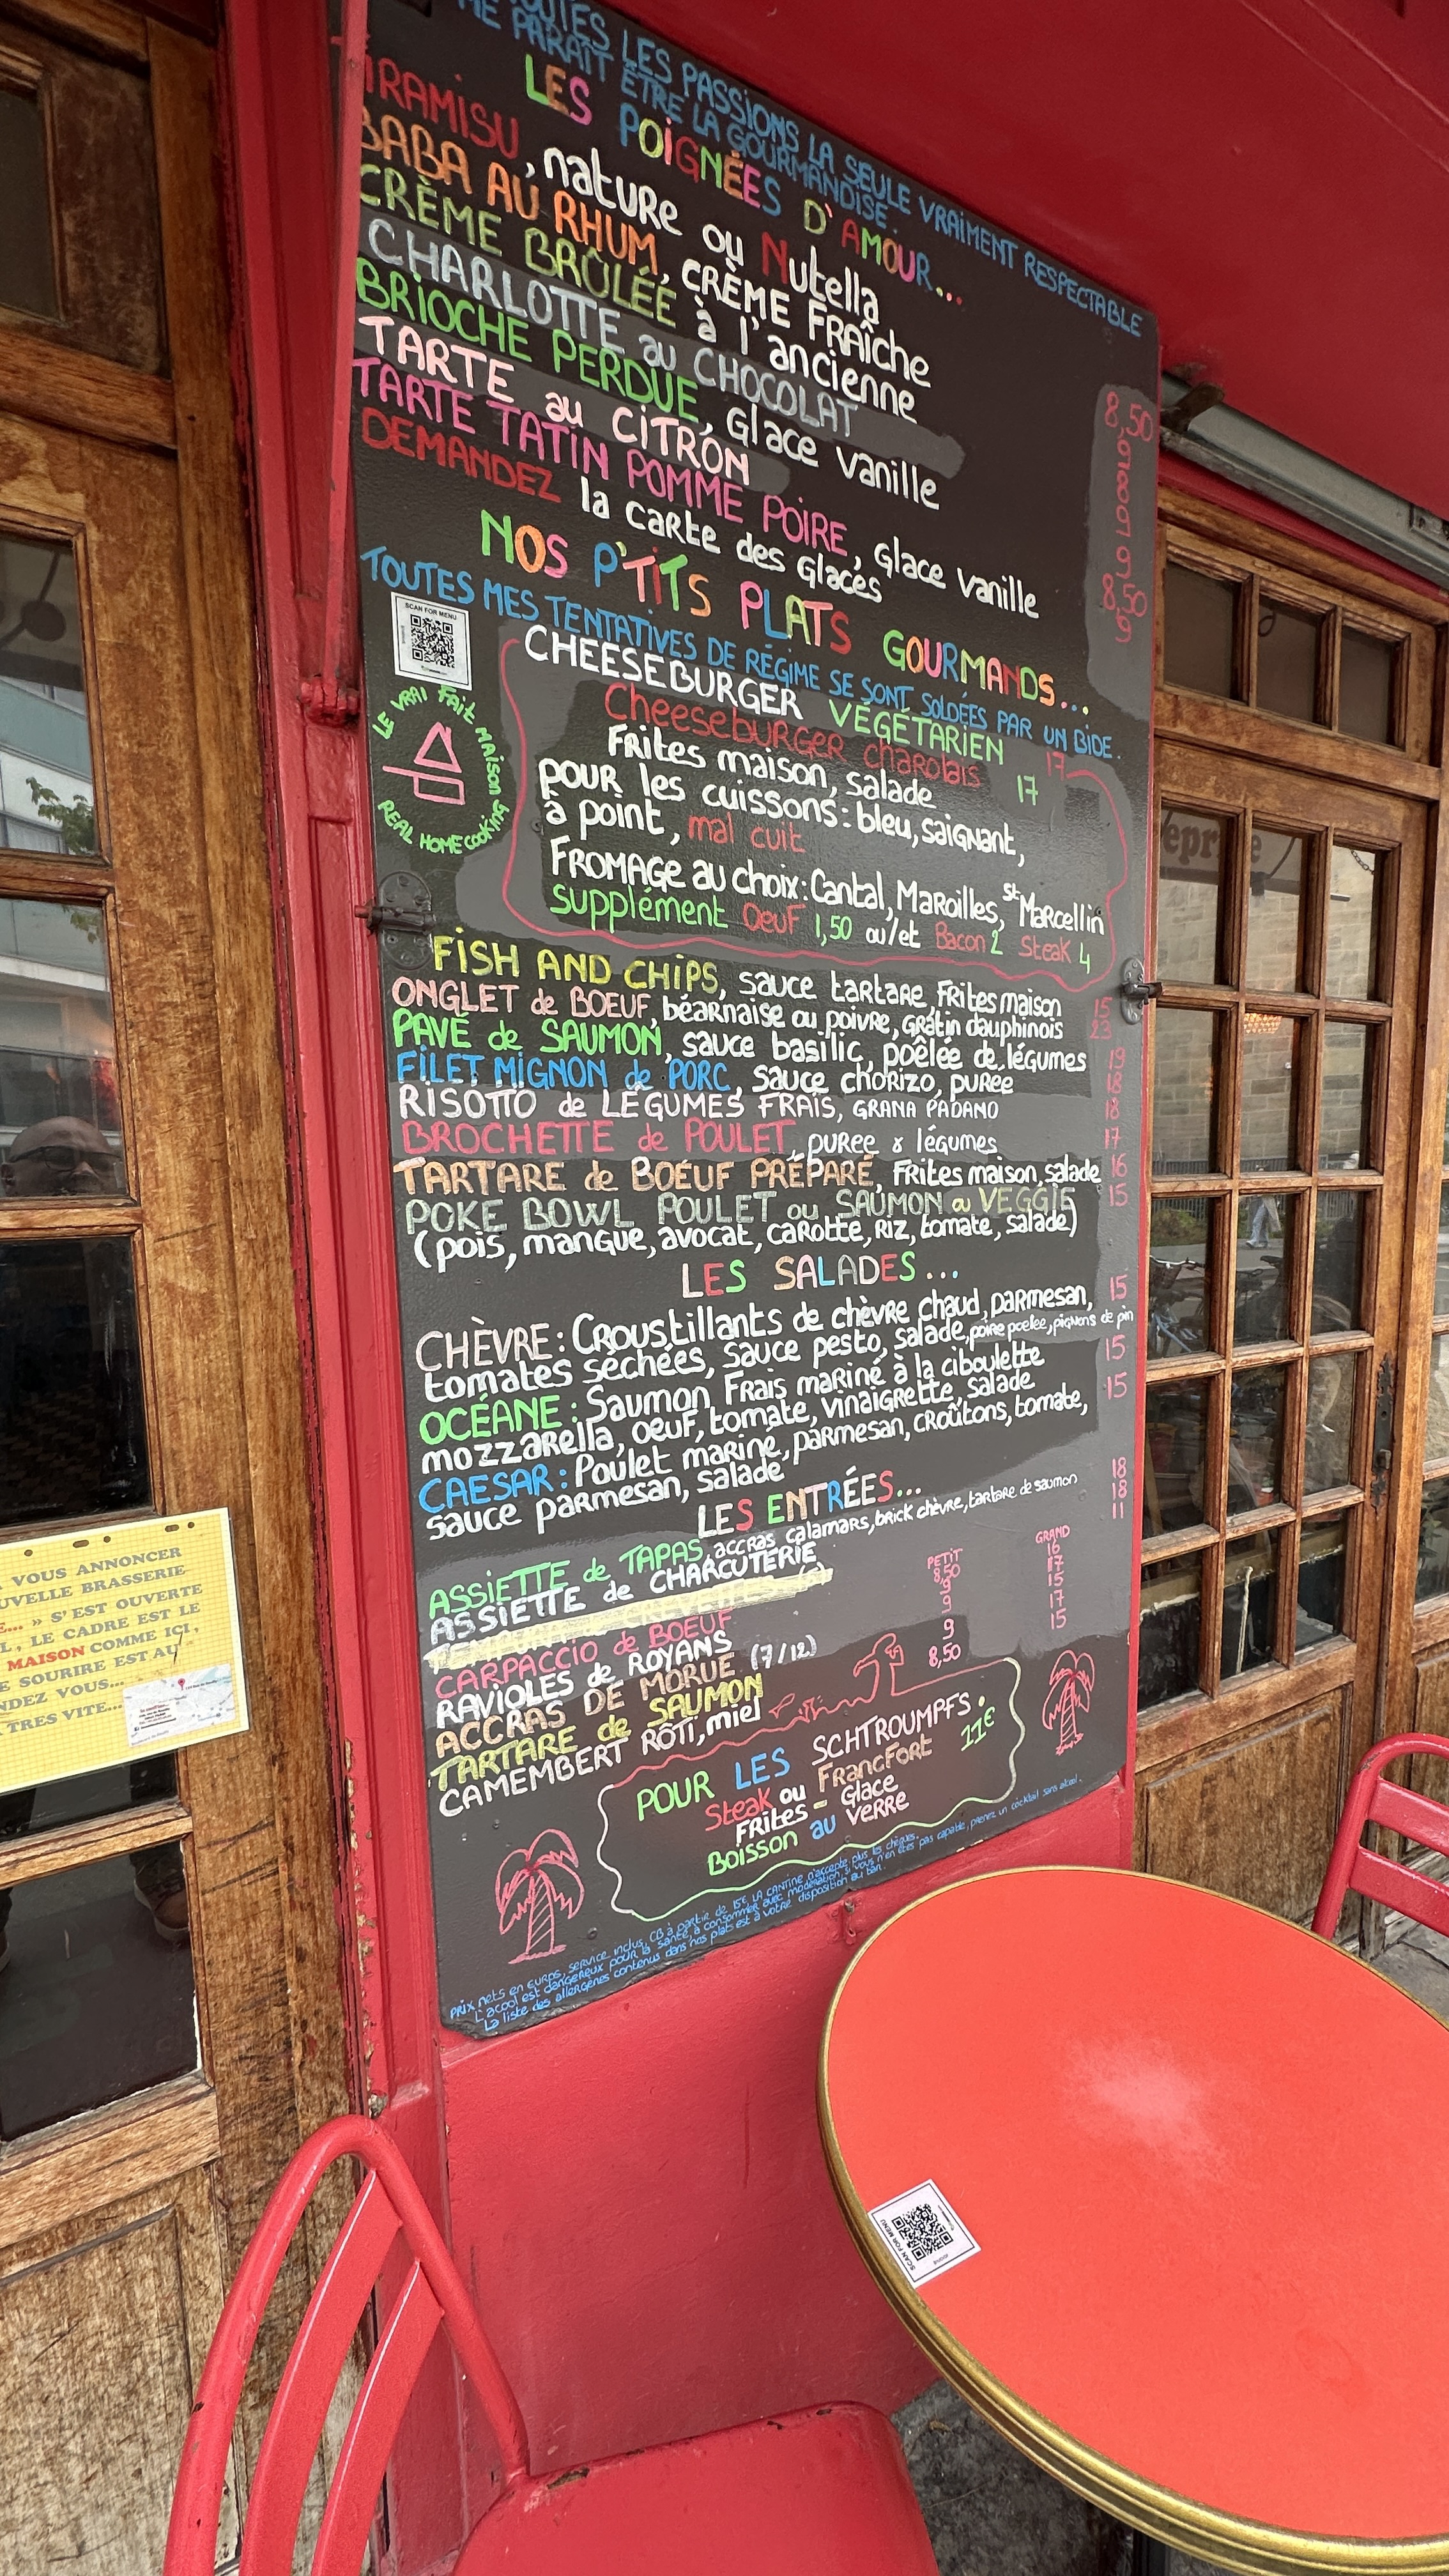 TOUTES LES PASSIONS LA SEULE VRAIMENT RESPECTABLE
ME PARAÎT ÊTRE LA GOURMANDISE.
LES POIGNÉES D'AMOUR...
TIRAMISU, nature ou Nutella 8,50
BABA AU RHUM, CRÈME FRAÎCHE 9
CRÈME BRÛLÉE à l'ancienne 8
CHARLOTTE au CHOCOLAT 9
BRIOCHE PERDUE, Glace vanille 9
TARTE au CITRON 8,50
TARTE TATIN POMME POIRE, Glace vanille 9
DEMANDEZ la carte des Glaces
NOS P'TITS PLATS GOURMANDS...
TOUTES MES TENTATIVES DE RÉGIME SE SONT SOLDÉES PAR UN BIDE.
SCAN FOR MENU
LE VRAI FAIT MAISON
REAL HOME COOKING
CHEESEBURGER VÉGÉTARIEN 17
Cheeseburger charolais 17
Frites maison, salade
pour les cuissons: bleu, saignant,
à point, mal cuit
Fromage au choix: Cantal, Maroilles, St Marcellin
supplément Oeuf 1,50 ou/et Bacon 2 Steak 4
FISH AND CHIPS, sauce tartare Frites maison 15
ONGLET de BOEUF, béarnaise ou poivre, gratin dauphinois 23
PAVÉ de SAUMON, sauce basilic, poêlée de légumes 19
FILET MIGNON de PORC, sauce chorizo, purée 18
RISOTTO de LÉGUMES FRAIS, GRANA PADANO 18
BROCHETTE de POULET, puree & légumes 17
TARTARE de BOEUF PRÉPARÉ, Frites maison, salade 16
POKE BOWL POULET ou SAUMON ou VEGGIE 15
(pois, mangue, avocat, carotte, riz, tomate, salade)
LES SALADES...
CHÈVRE: Croustillants de chèvre chaud, parmesan, 15
tomates séchées, sauce pesto, salade, poire poelee, pignons de pin
OCÉANE: Saumon Frais mariné à la ciboulette 15
mozzarella, oeuf, tomate, vinaigrette, salade
CAESAR: Poulet mariné, parmesan, croûtons, tomate, 15
sauce parmesan, salade
LES ENTRÉES...
ASSIETTE de TAPAS accras calamars, brick chèvre, tartare de saumon 18
ASSIETTE de CHARCUTERIE 18
11
PETIT GRAND
CARPACCIO de BOEUF 8,50 16
RAVIOLES de ROYANS 9 17
ACCRAS DE MORUE (7/12) 9 15
TARTARE de SAUMON 9 17
CAMEMBERT RÔTI, miel 8,50 15
POUR LES SCHTROUMPFS. 11€
Steak ou Francfort
Frites - Glace
Boisson au verre
PRIX nets en EUROS, service inclus, CB à partir de 15€ LA CANTINE n'accepte plus les chèques.
L'acool est dangereux pour la santé, à consommer avec modération, si vous n'en êtes pas capable, prenez un cocktail sans alcool.
La liste des allergènes contenus dans nos plats est à votre disposition au bar.
VOUS ANNONCER
UVELLE BRASSERIE
...» S'EST OUVERTE
L, LE CADRE EST LE
MAISON COMME ICI,
E SOURIRE EST AU
NDEZ VOUS...
TRES VITE...
SCAN FOR MENU